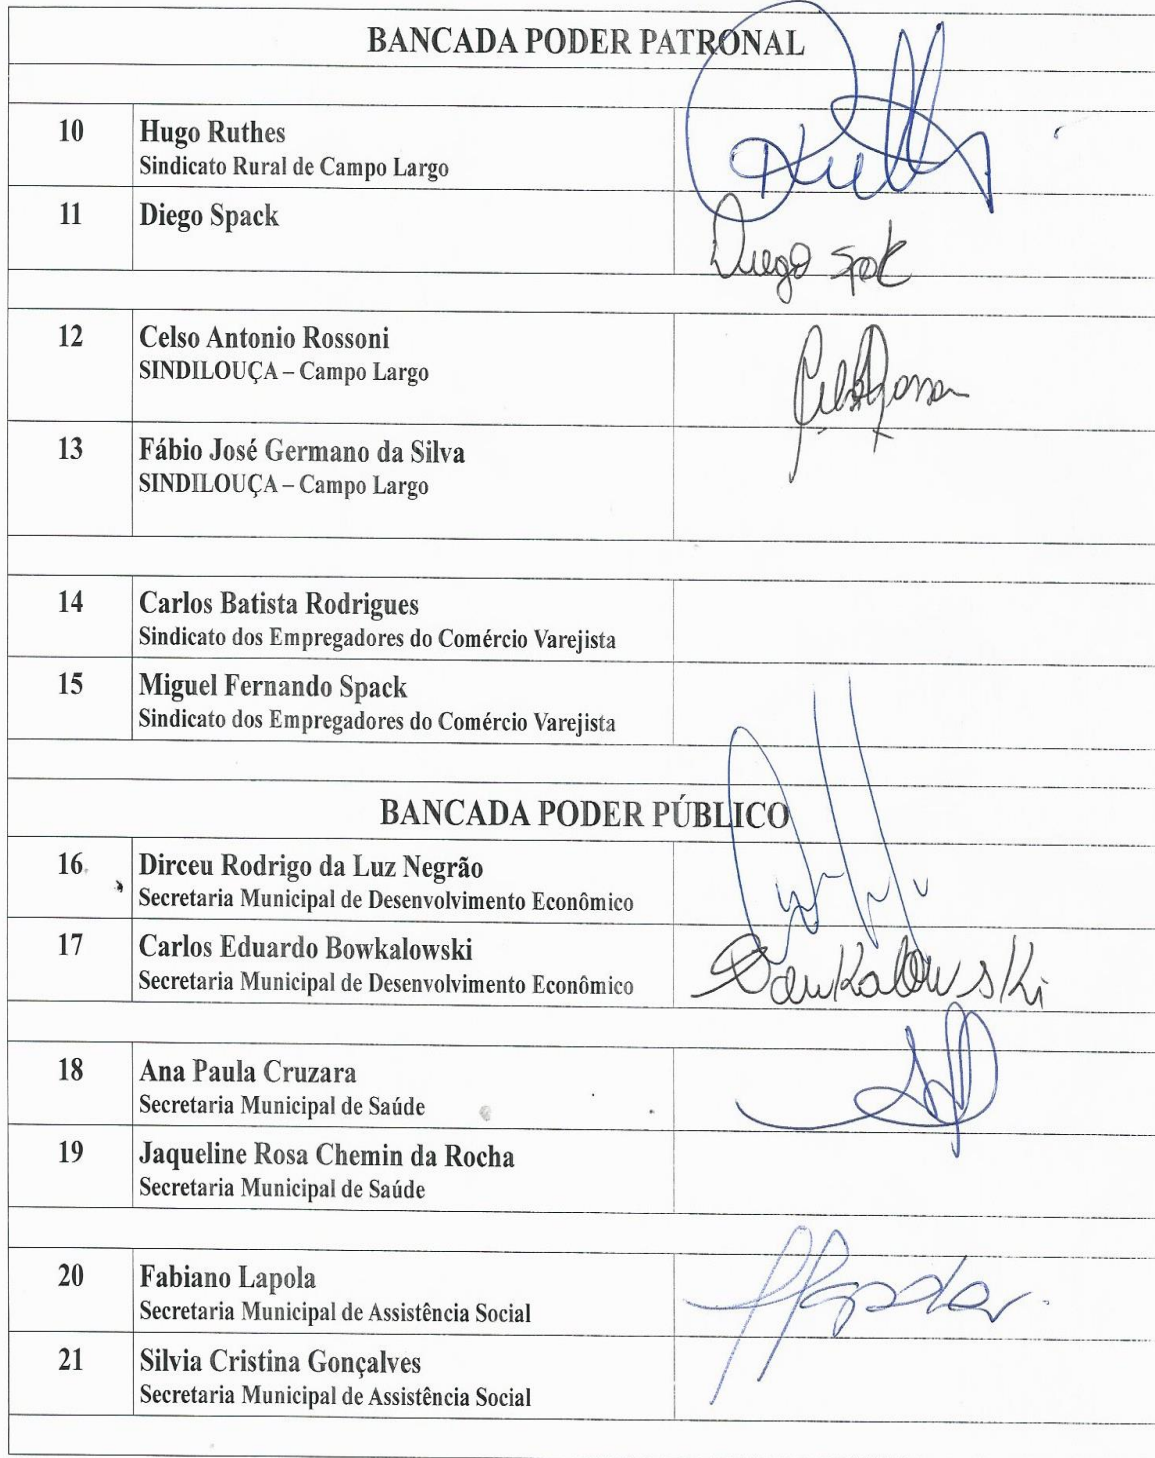 BANCADA PODER PATRONAL
10 Hugo Ruthes
Sindicato Rural de Campo Largo
11 Diego Spack
Diego Spak
12 Celso Antonio Rossoni
SINDILOUÇA – Campo Largo
13 Fábio José Germano da Silva
SINDILOUÇA – Campo Largo
14 Carlos Batista Rodrigues
Sindicato dos Empregadores do Comércio Varejista
15 Miguel Fernando Spack
Sindicato dos Empregadores do Comércio Varejista
BANCADA PODER PÚBLICO
16 Dirceu Rodrigo da Luz Negrão
Secretaria Municipal de Desenvolvimento Econômico
17 Carlos Eduardo Bowkalowski
Secretaria Municipal de Desenvolvimento Econômico
Bowkalowski
18 Ana Paula Cruzara
Secretaria Municipal de Saúde
19 Jaqueline Rosa Chemin da Rocha
Secretaria Municipal de Saúde
20 Fabiano Lapola
Secretaria Municipal de Assistência Social
21 Silvia Cristina Gonçalves
Secretaria Municipal de Assistência Social